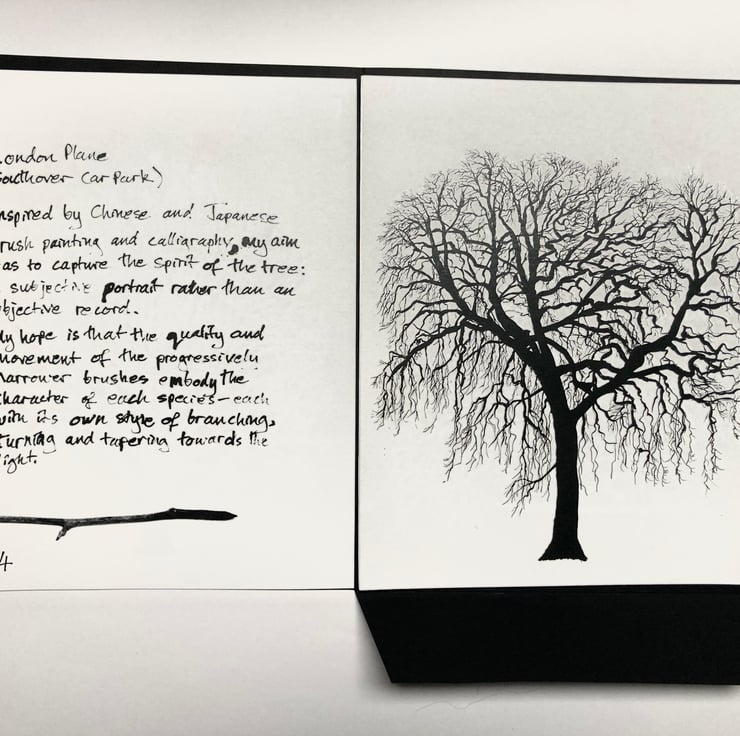 ondon Plane
outhover Car Park)
nspired by Chinese and Japanese
rush painting and calligraphy, my aim
as to capture the spirit of the tree:
subjective portrait rather than an
bjective record.
y hope is that the quality and
ovement of the progressively
arrower brushes embody the
haracter of each species – each
ith its own style of branching,
turning and tapering towards the
ight.
4